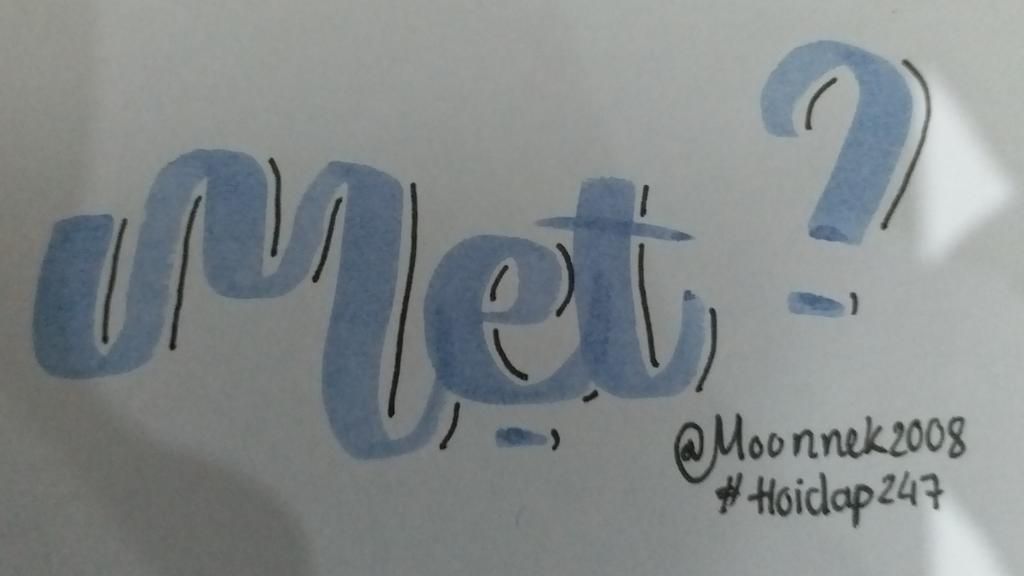 Mẹt?
@Moonnek2008
#Hoidap247